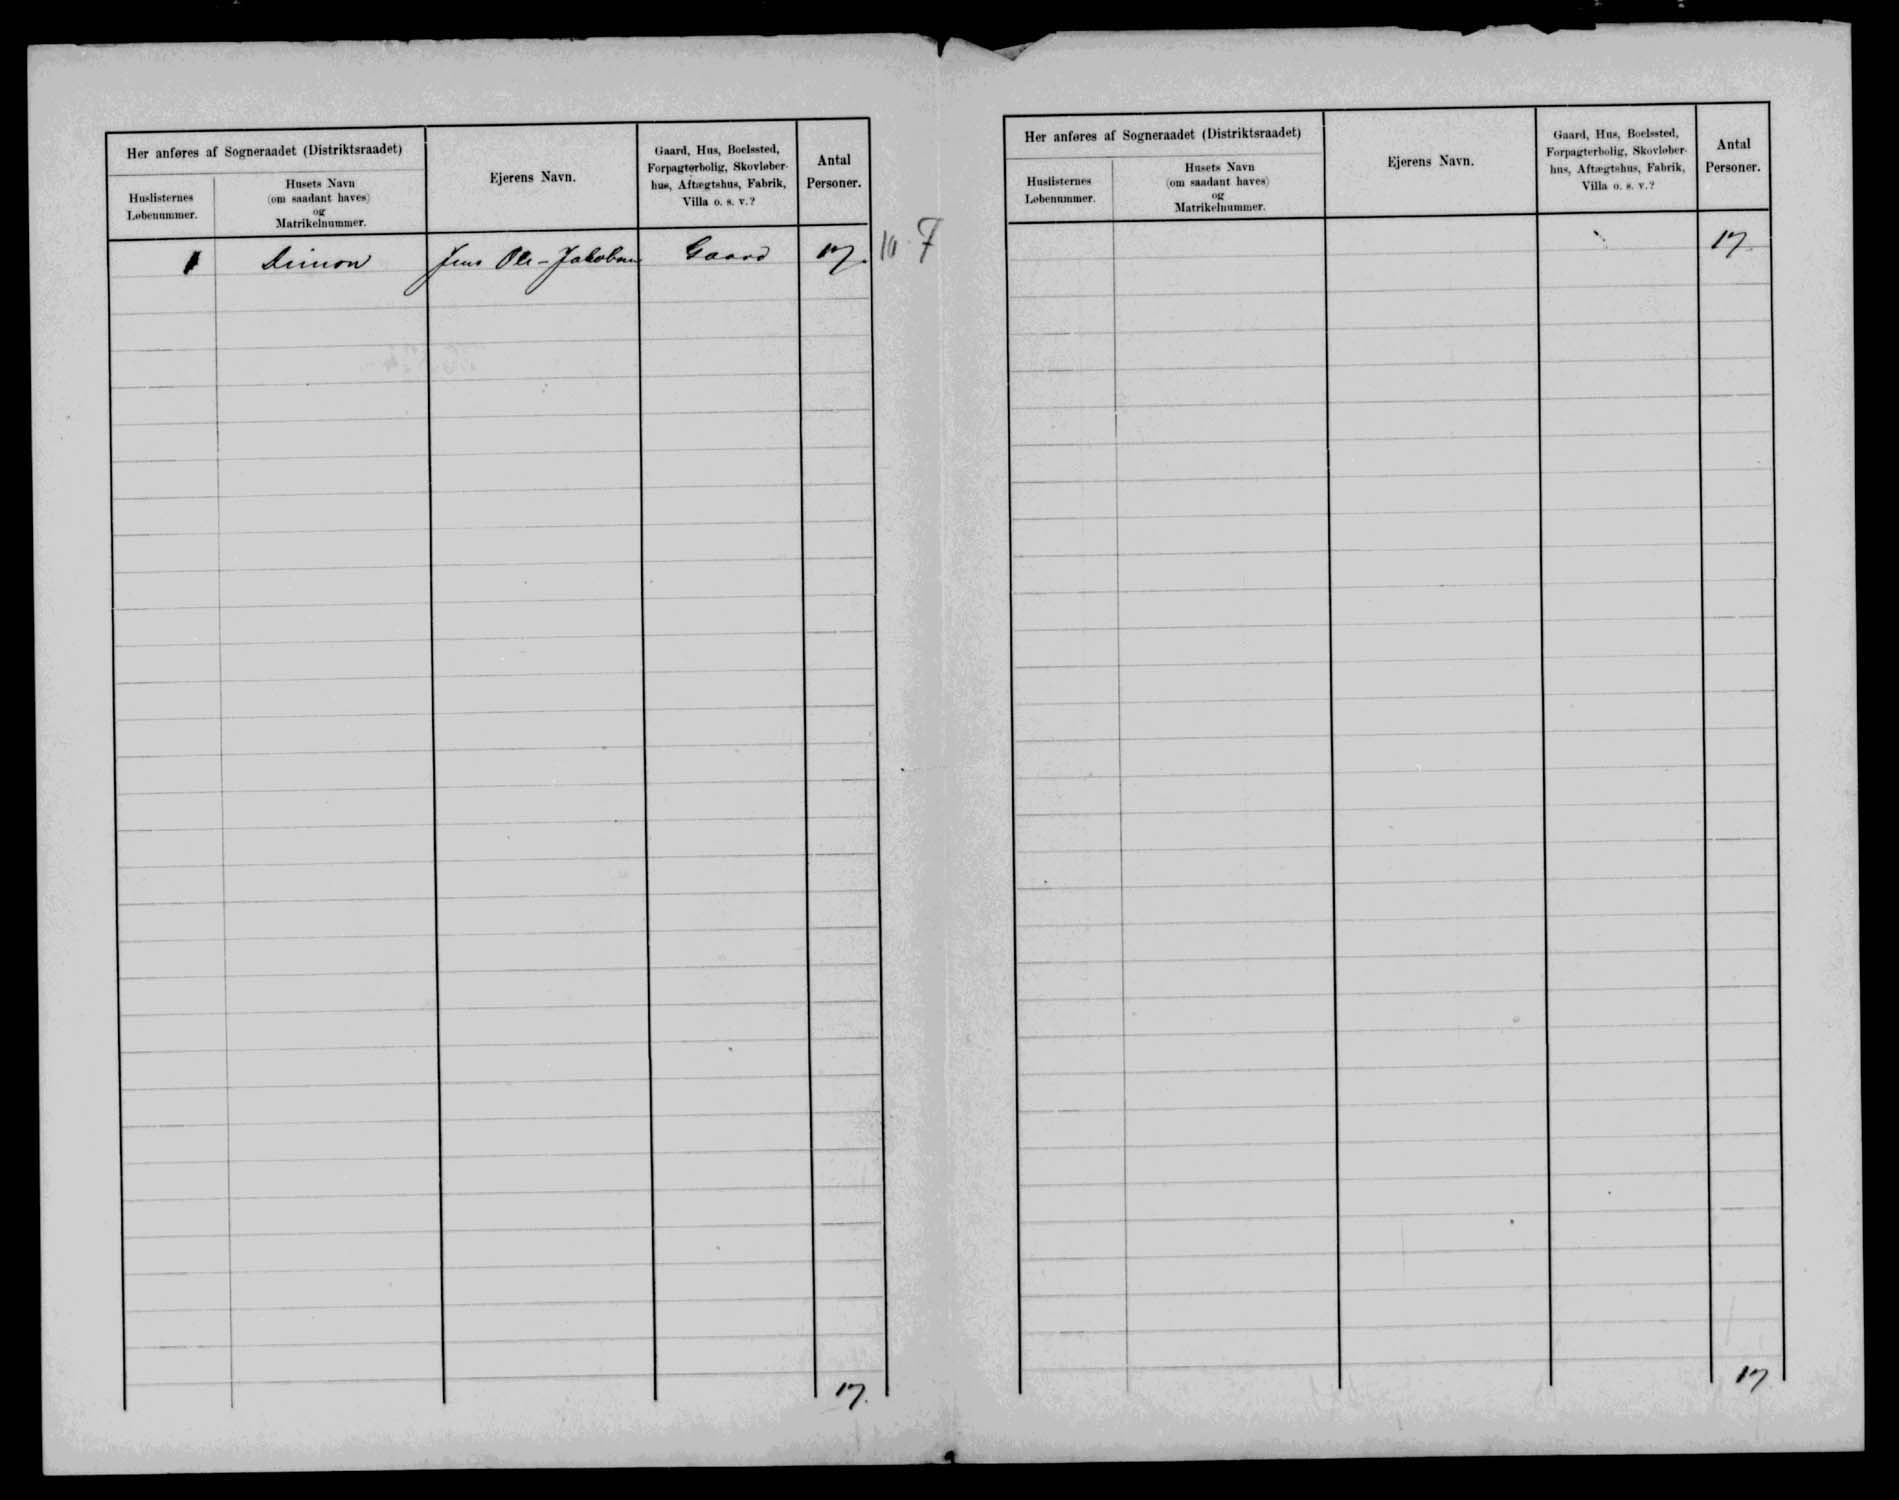 Her anføres af Sogneraadet (Distriktsraadet)
Huslisternes
Løbenummer.
Husets Navn
(om saadant haves)
og
Matrikelnummer.
Ejerens Navn.
Gaard, Hus, Boelssted,
Forpagterbolig, Skovløber-
hus, Aftægtshus, Fabrik,
Villa o. s. v.?
Antal
Personer.
1 Dimon Jens Ole-Jakobsen Gaard 17.
10 F
17.
Her anføres af Sogneraadet (Distriktsraadet)
Huslisternes
Løbenummer.
Husets Navn
(om saadant haves)
og
Matrikelnummer.
Ejerens Navn.
Gaard, Hus, Boelssted,
Forpagterbolig, Skovløber-
hus, Aftægtshus, Fabrik,
Villa o. s. v.?
Antal
Personer.
17
17